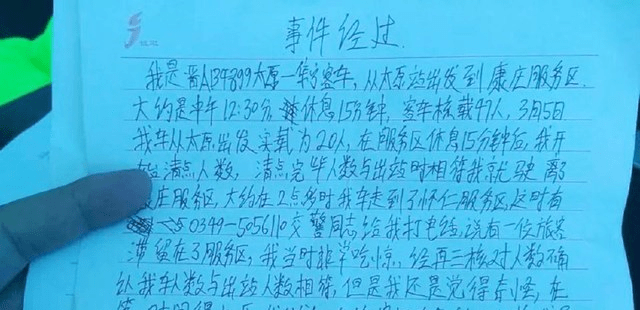 事件经过
我是晋A134899太原一车号客车，从太原站出发到康庄服务区，
大约是中午12:30分，休息15分钟，客车核载47人，3月5日
我车从太原出发，实载为20人，在服务区休息15分钟后，我开
始清点人数，清点完毕人数与出站时相等我就驶离
庄服务区，大约在2点多时我车走到了怀仁服务区，这时有
0349-5056110交警同志给我打电话，说有一位旅客
滞留在了服务区，我当时非常吃惊，经再三核对人数确
认我车人数与出站人数相符，但是我还是觉得奇怪，在